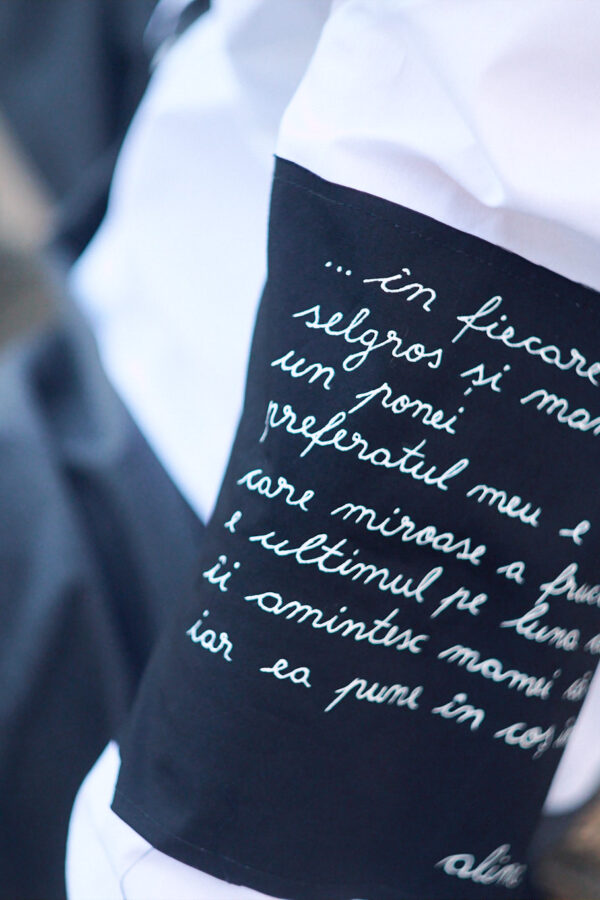 ... în fiecare
selgros și mam
un ponei
preferatul meu e
care miroase a fruc
e ultimul pe luna
îi amintesc mamei
iar ea pune în coș
alin